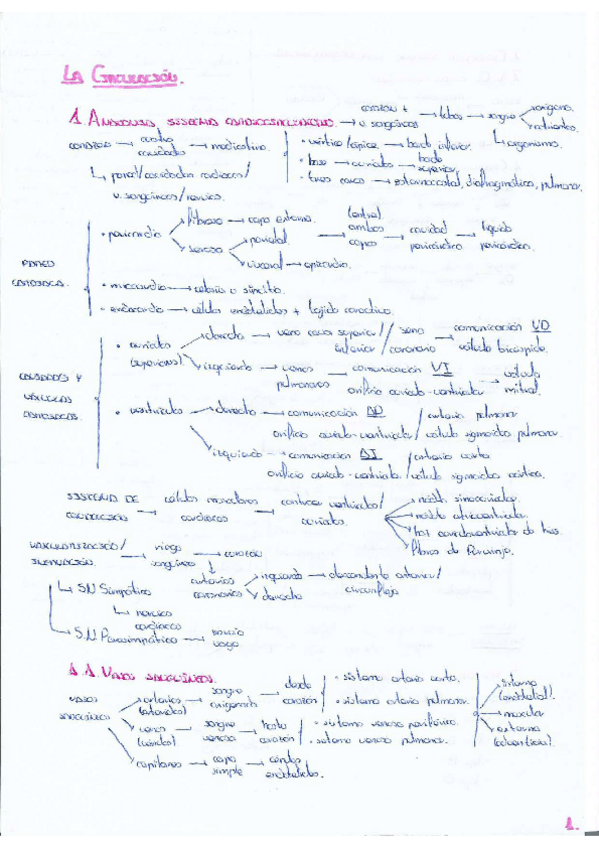 La Circulación.
1. Anatomía sistema cardiocirculatorio. → corazón + v. sanguíneos → tubos → sangre → oxígeno. nutrientes
↳ organismo.
corazón → cuatro cavidades → mediastino.
• vértice/ápice → borde inferior.
• base → aurículas → borde superior.
• tres caras → esternocostal, diafragmática, pulmonar.
↳ pared/cavidades cardíacas/
v. sanguíneos/nervios.
PARED CARDÍACA.
• pericardio
fibroso → capa externa.
seroso → parietal.
visceral → epicardio.
(entre) ambas capas → cavidad pericárdica → líquido pericárdico.
• miocardio → células o sincitio.
• endocardio → células endoteliales + tejido conectivo.
CAVIDADES Y VÁLVULAS CARDÍACAS
• aurículas (superiores)
derecha → vena cava superior/inferior / seno coronario → comunicación VD válvula
izquierda → venas pulmonares → comunicación VI orificio aurículo-ventricular → válvula mitral.
• ventrículos
derecho → comunicación AD orificio aurículo-ventricular / arteria pulmonar válvula sigmoidea pulmonar.
izquierdo → comunicación AI orificio aurículo-ventricular. / arteria aorta válvula sigmoidea aórtica.
SISTEMA DE CONDUCCIÓN → células musculares cardíacas → contraer ventrículos/aurículas
nódulo
nódulo
haz aurículoventricular de his.
fibras de Purkinje.
VASCULARIZACIÓN/INERVACIÓN. → riego sanguíneo → corazón
arterias coronarias
izquierda → descendente anterior/circunfleja
derecha
↳ SN Simpático
↳ nervios cardíacos
↳ SN Parasimpático → nervio vago
1.1. Vasos sanguíneos.
VASOS SANGUÍNEOS
arterias (arteriolas) → sangre oxigenada → desde corazón
• sistema arteria aorta.
• sistema arteria pulmonar.
venas (vénulas) → sangre venosa → hasta corazón
• sistema venoso periférico.
• sistema venoso pulmonar.
capilares → capa simple → células endoteliales.
interna (endotelial).
muscular
externa (adventicia).
1.